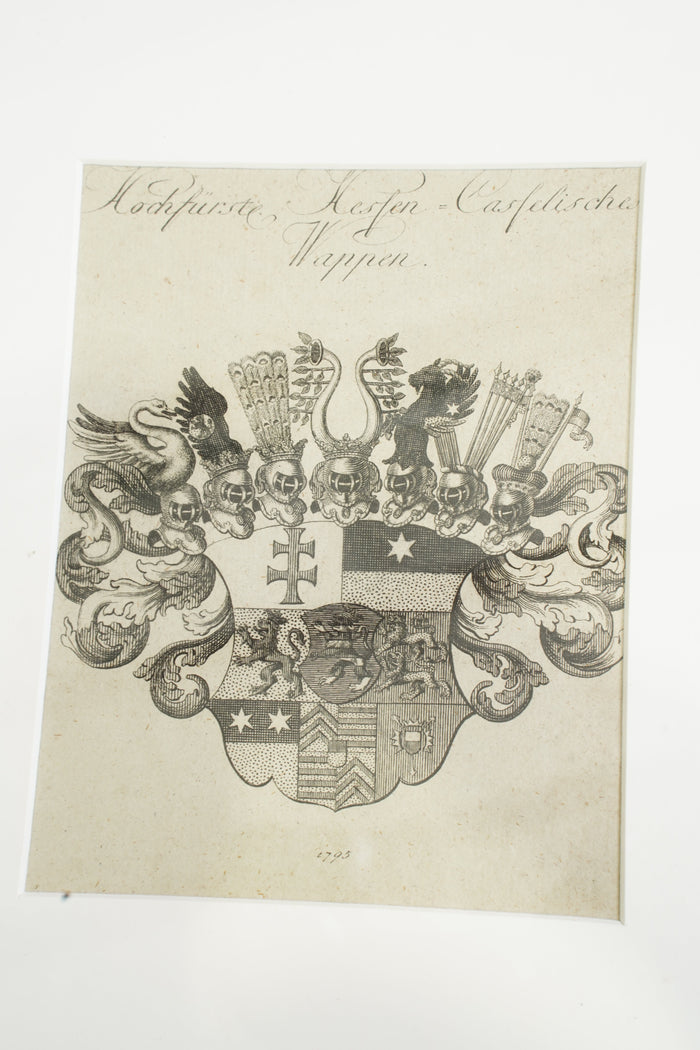 Hochfürstl. Hessen=Casselisches
Wappen.
1795